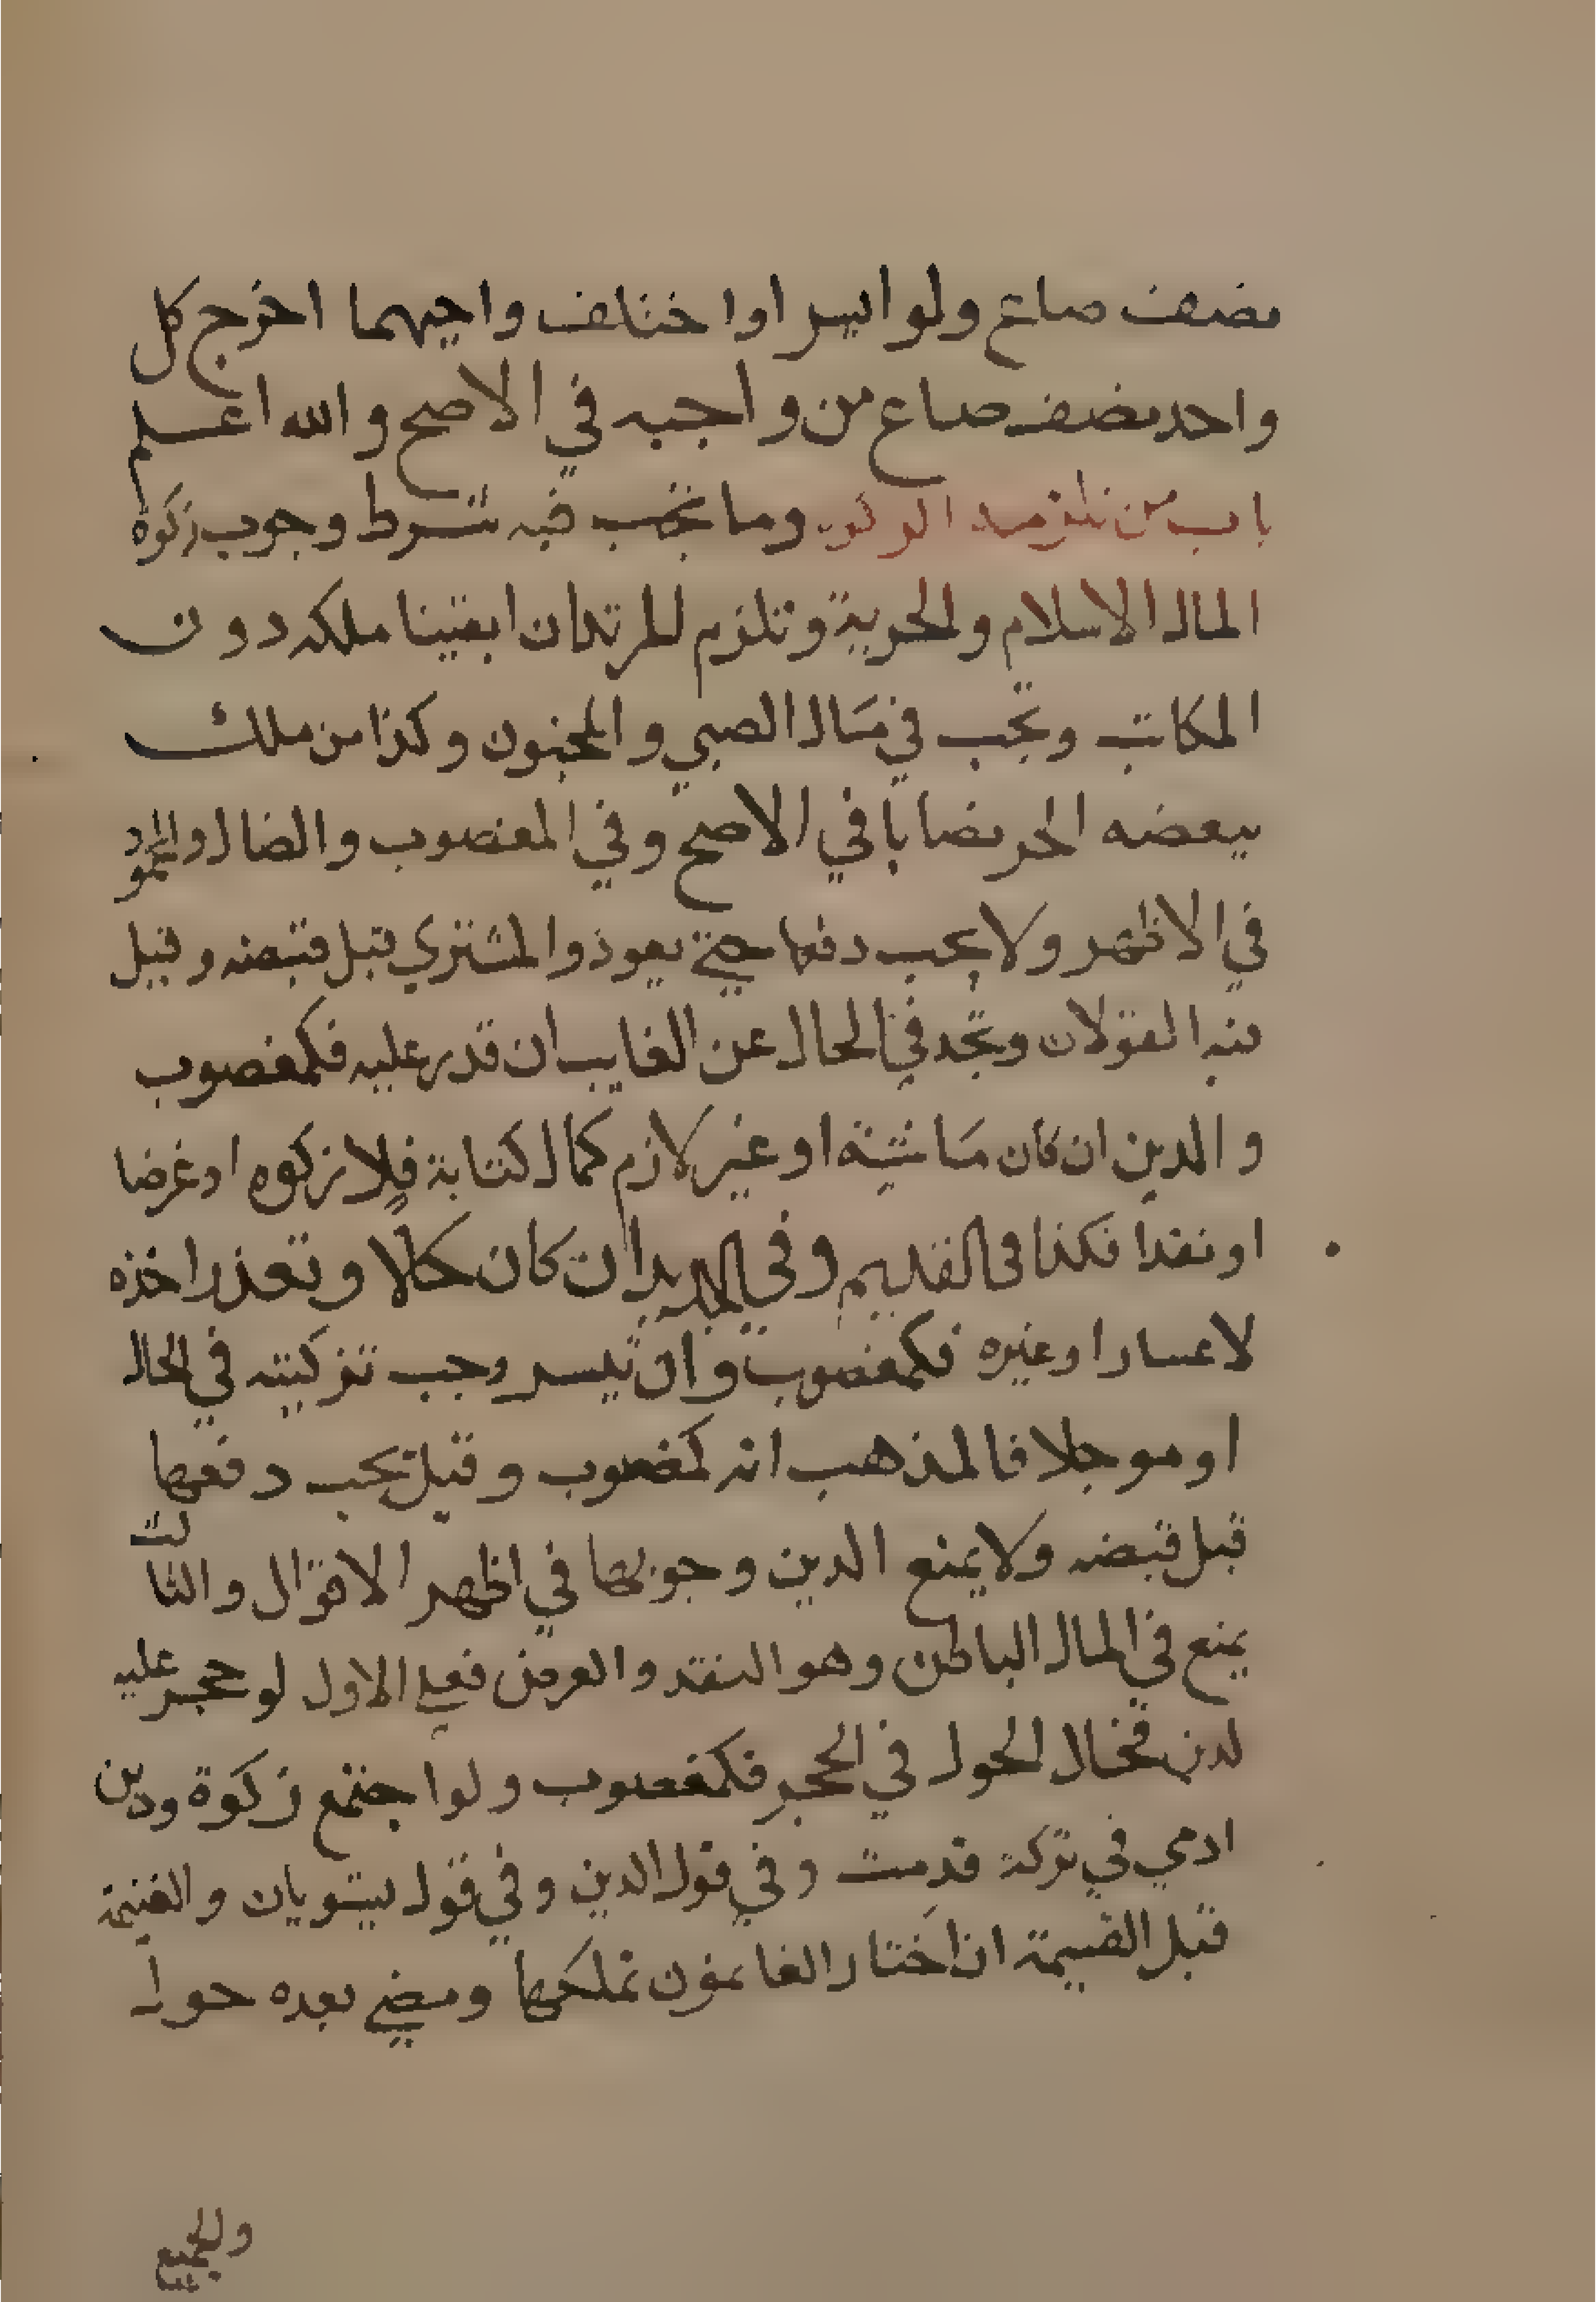 نصف صاع ولو ايسرا واختلف واجبهما اخرج كل
واحد نصف صاع من واجبه في الاصح والله اعلم
باب من تلزمه الزكوة وما تجب فيه شرط وجوب زكوة
المال الاسلام والحرية وتلزم المرتد ان ابقينا ملكه دون
المكاتب وتجب في مال الصبي والمجنون وكذا من ملك
ببعضه الحر نصابا في الاصح وفي المغصوب والضال والمجحود
في الاظهر ولا يجب دفعها حتى يعود والمشتري قبل قبضه وقيل
فيه القولان وتجب في الحال عن الغايب ان قدر عليه فكمغصوب
والدين ان كان ماشية او غير لازم كمال كتابة فلا زكوة او عرضا
او نقدا فكذا في القديم وفي الجديد ان كان حالا وتعذر اخذه
لاعسار او غيره فكمغصوب وان تيسر وجب تزكيته في الحال
او موجلا فالمذهب انه كمغصوب وقيل يجب دفعها
قبل قبضه ولا يمنع الدين وجوبها في اظهر الاقوال والثالث
يمنع في المال الباطن وهو النقد والعرض فعلى الاول لو حجر عليه
لدين فحال الحول في الحجر فكمغصوب ولو اجتمع زكوة ودين
ادمي في تركة قدمت وفي قول الدين وفي قول يستويان والغنيمة
قبل القسمة ان اختار الغانمون تملكها ومضى بعده حول
والجميع